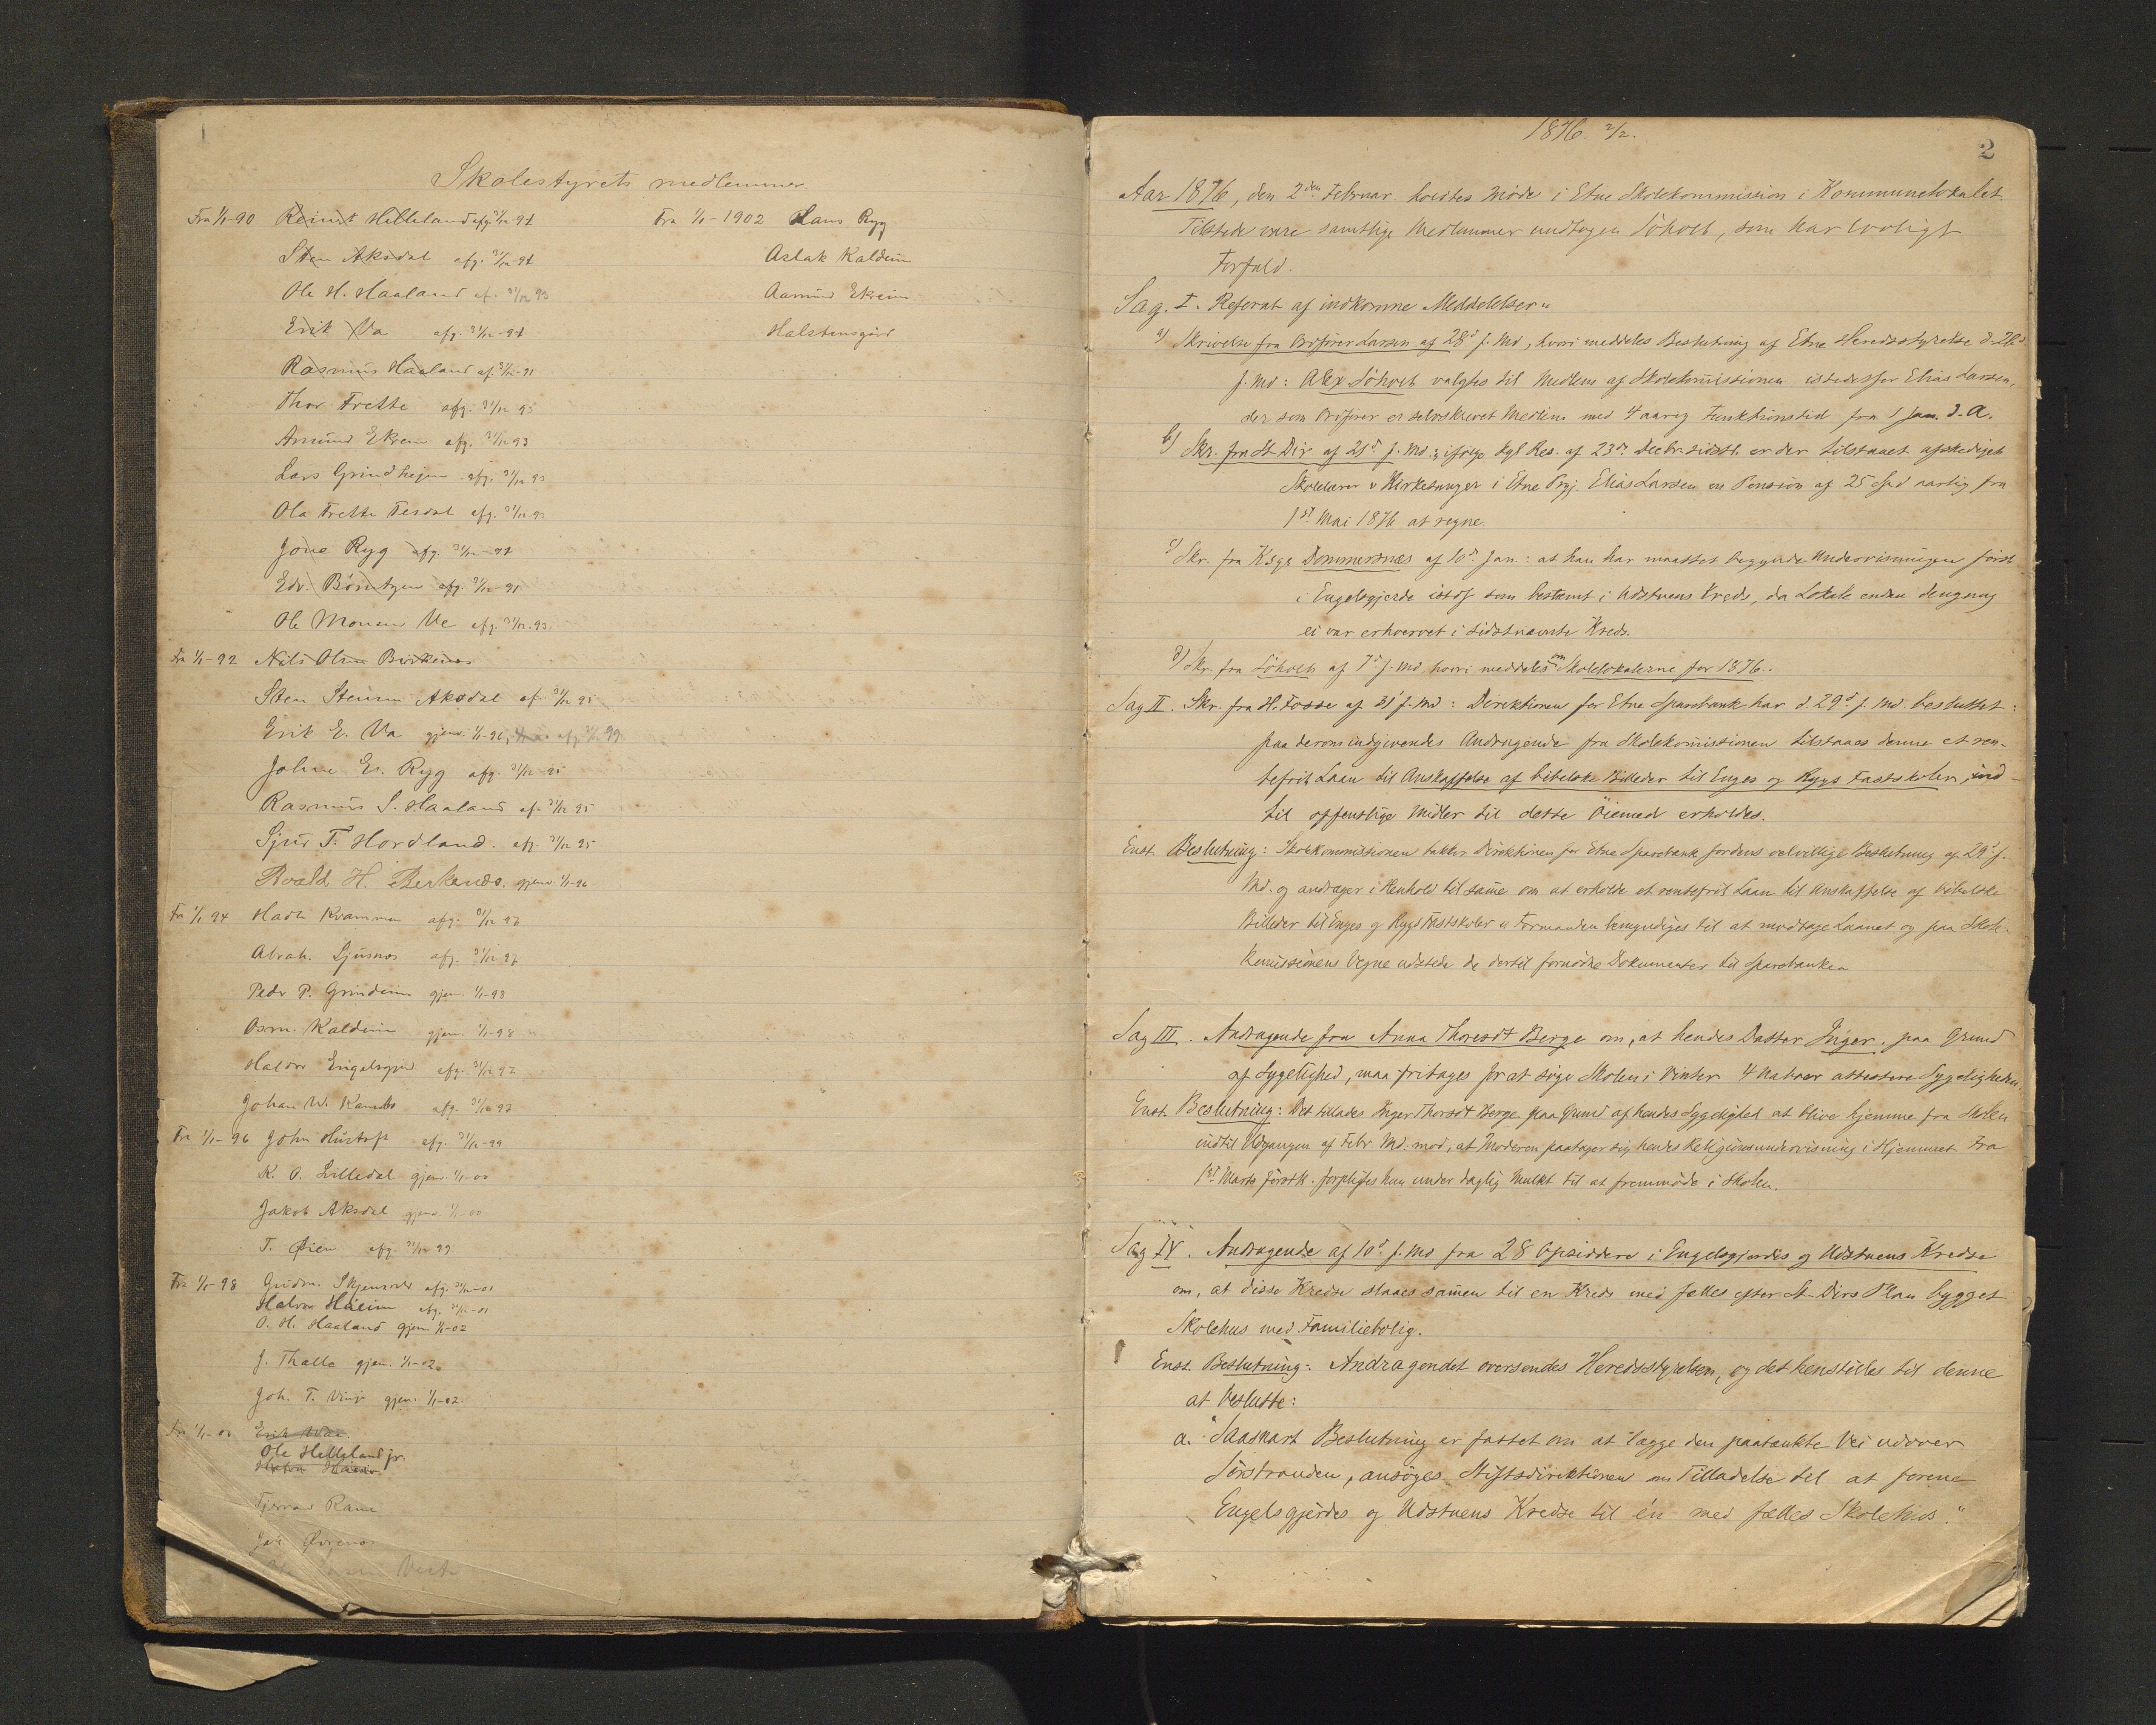 1
Skolestyrets medlemmer.
Fra 1/1-90 Reinert Helleland afg. 31/12-91
Sten Aksdal afg. 31/12-91
Ole H. Haaland af. 31/12 93
Erik Va afg. 31/12-91
Rasmus Haaland af. 31/12-91
Thor Frette afg. 31/12 93
Amund Ekrem afg. 31/12 93
Lars Grindheim afg. 31/12 93
Ola Frette Tesdal afg. 31/12-93
Jone Ryg afg. 31/12-91
Edv. Börretzen afg. 31/12-91
Ole Monsen Ve afg. 31/12.93.
Fra 1/1-92 Nils Olsen Birkenes
Sten Stensen Aksdal af. 31/12 95
Erik E. Va gjenv. 1/1-96, afg. 31/12 99
Johne Er. Ryg afg. 31/12-95
Rasmus S. Haaland af. 31/12 95
Sjur T. Hordland. afg. 31/12 95
Roald H. Berkenes. gjenv. 1/1-96
Fr 1/1 94 Kvammen afg. 31/12 97
Abrah. Ljusnes afg. 31/12-97
Peder P. Grindeim gjen. 1/1-98
Osm. Kaldeim gjen. 1/1-98
Haldor Engelsgjerd afg. 31/12 97
Johan W. afg. 31/12 97
Fra 1/1-96 John Hustoft afg. 31/12-99
K. O. Lilledal gjenv. 1/1-00
Jakob Aksdal gjenv. 1/1-00
T. Øien afg. 31/12 99
Fra 1/1-98 Gudm. Skjensvold afg. 31/12-01
Halvor Håeim afg. 31/12-01
O. H. Haaland gjen. 1/1-02
J. Thalle gjen. 1/1-02
Joh. T. Vinje gjen. 1/1-02.
Fr 1/1-00 Erik Vaa.
Ole Helleland jr.
Rame
Joh.
Fra 1/1-1902 Hans Ryg
Aslak Kaldeim
Aamund Ekreim
Halstensgård
1876 2/2.
2
Aar 1876, den 2den Februar holdtes Möde i Etne Skolekommission i Kommunelokalet.
Tilstede vare samtlige Medlemmer undtagen Söholt, som har lovligt
Forfald.
Sag. I. Referat af indkomne Meddelelser:
a) Skrivelse fra Ordförer Larsen af 28d f. Md, hvori meddeles Beslutning af Etne Heredsstyrelse d. 28d
f. Md: Alex Söholt valgtes til Medlem af Skolekom̄issionen istedetfor Elias Larsen,
der som Ordförer er selvskrevet Medlem med 4 aarig Funktionstid fra 1 Jan. d. A.
b) Skr. fra St Dir af 21d f. Md.: ifölge Kgl Res. af 23de Decbr. sidstl. er der tilstaaet afskediget
Skolelærer & Kirkesanger i Etne Prgj. Elias Larsen en Pension af 25 Spd aarlig fra
1st Mai 1876 at regne.
c) Skr. fra Ksgr Dommersnæs af 10d Jan.: at han har maattet begynde Undervisningen först
i Engelsgjerde istdf som bestemt i Udstuens Kreds, da Lokale endnu dengang
ei var erhvervet i sidstnævnte Kreds.
d) Skr. fra Söholt af 7d f. Md, hvori meddeles om Skolelokalerne for 1876.
Sag II. Skr. fra H. Fosse af 31 f. Md: Direktionen for Etne Sparebank har d. 29d f. Md. besluttet:
paa derom indgivendes Andragende fra Skolekom̄issionen tilstaaes denne et ren-
tefrit Laan til Anskaffelse af bibelske Billeder til Enges og Rygs Fastskoler, ind-
til offentlige Midler til dette Öiemed erholdes.
Enst. Beslutning: Skolekommissionen takker Direktionen for Etne Sparebank for dens velvillige Beslutning af 29d f.
Md. og andrager i Henhold til sam̄e om at erholde et rentefrit Laan til Anskaffelse af bibelske
Billeder til Enges og Rygs Fastskoler. Formanden bemyndiges til at modtage Laanet og paa Skole-
kom̄issionens Vegne udstede de dertil fornödne Dokumenter til Sparebanken
Sag III. Andragende fra Anna Thoresdt Berge om, at hendes Datter Inger, paa Grund
af Sygelighed, maa fritages for at söge Skolen i Vinter. 4 Naboer attestere Sygeligheden.
Enst. Beslutning: Det tillades Inger Thorsdt Berge paa Grund af hendes Sygelighed at blive hjemme fra Skolen
indtil Udgangen af Febr. Md. mod, at Moderen paatager sig hendes Religionsundervisning i Hjemmet. Fra
1st Marts förstk. forpligtes hun under daglig Mulkt til at fremmöde i Skolen.
Sag IV. Andragende af 10d f. Md fra 28 Opsiddere i Engelsgjerdes og Udstuens Kredse
om, at disse Kredse slaaes sam̄en til en Kreds med fælles efter St-Dirs Plan bygget
Skolehus med Familiebolig.
Enst. Beslutning: Andragendet oversendes Heredsstyrelsen, og det henstilles til denne
at beslutte:
a. "Saasnart Beslutning er fattet om at lægge den paatænkte Vei udover
Sörstranden, ansöges Stiftsdirektionen om Tilladelse til at forene
Engelsgjerdes og Udstuens Kredse til én med fælles Skolehus."